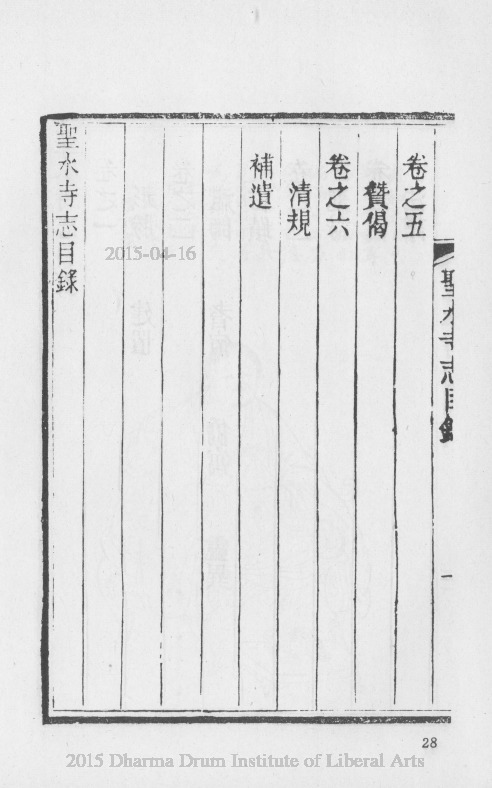 聖水寺志目錄
一
卷之五
贊偈
卷之六
清規
補遺
聖水寺志目錄
2015-04-16
28
2015 Dharma Drum Institute of Liberal Arts